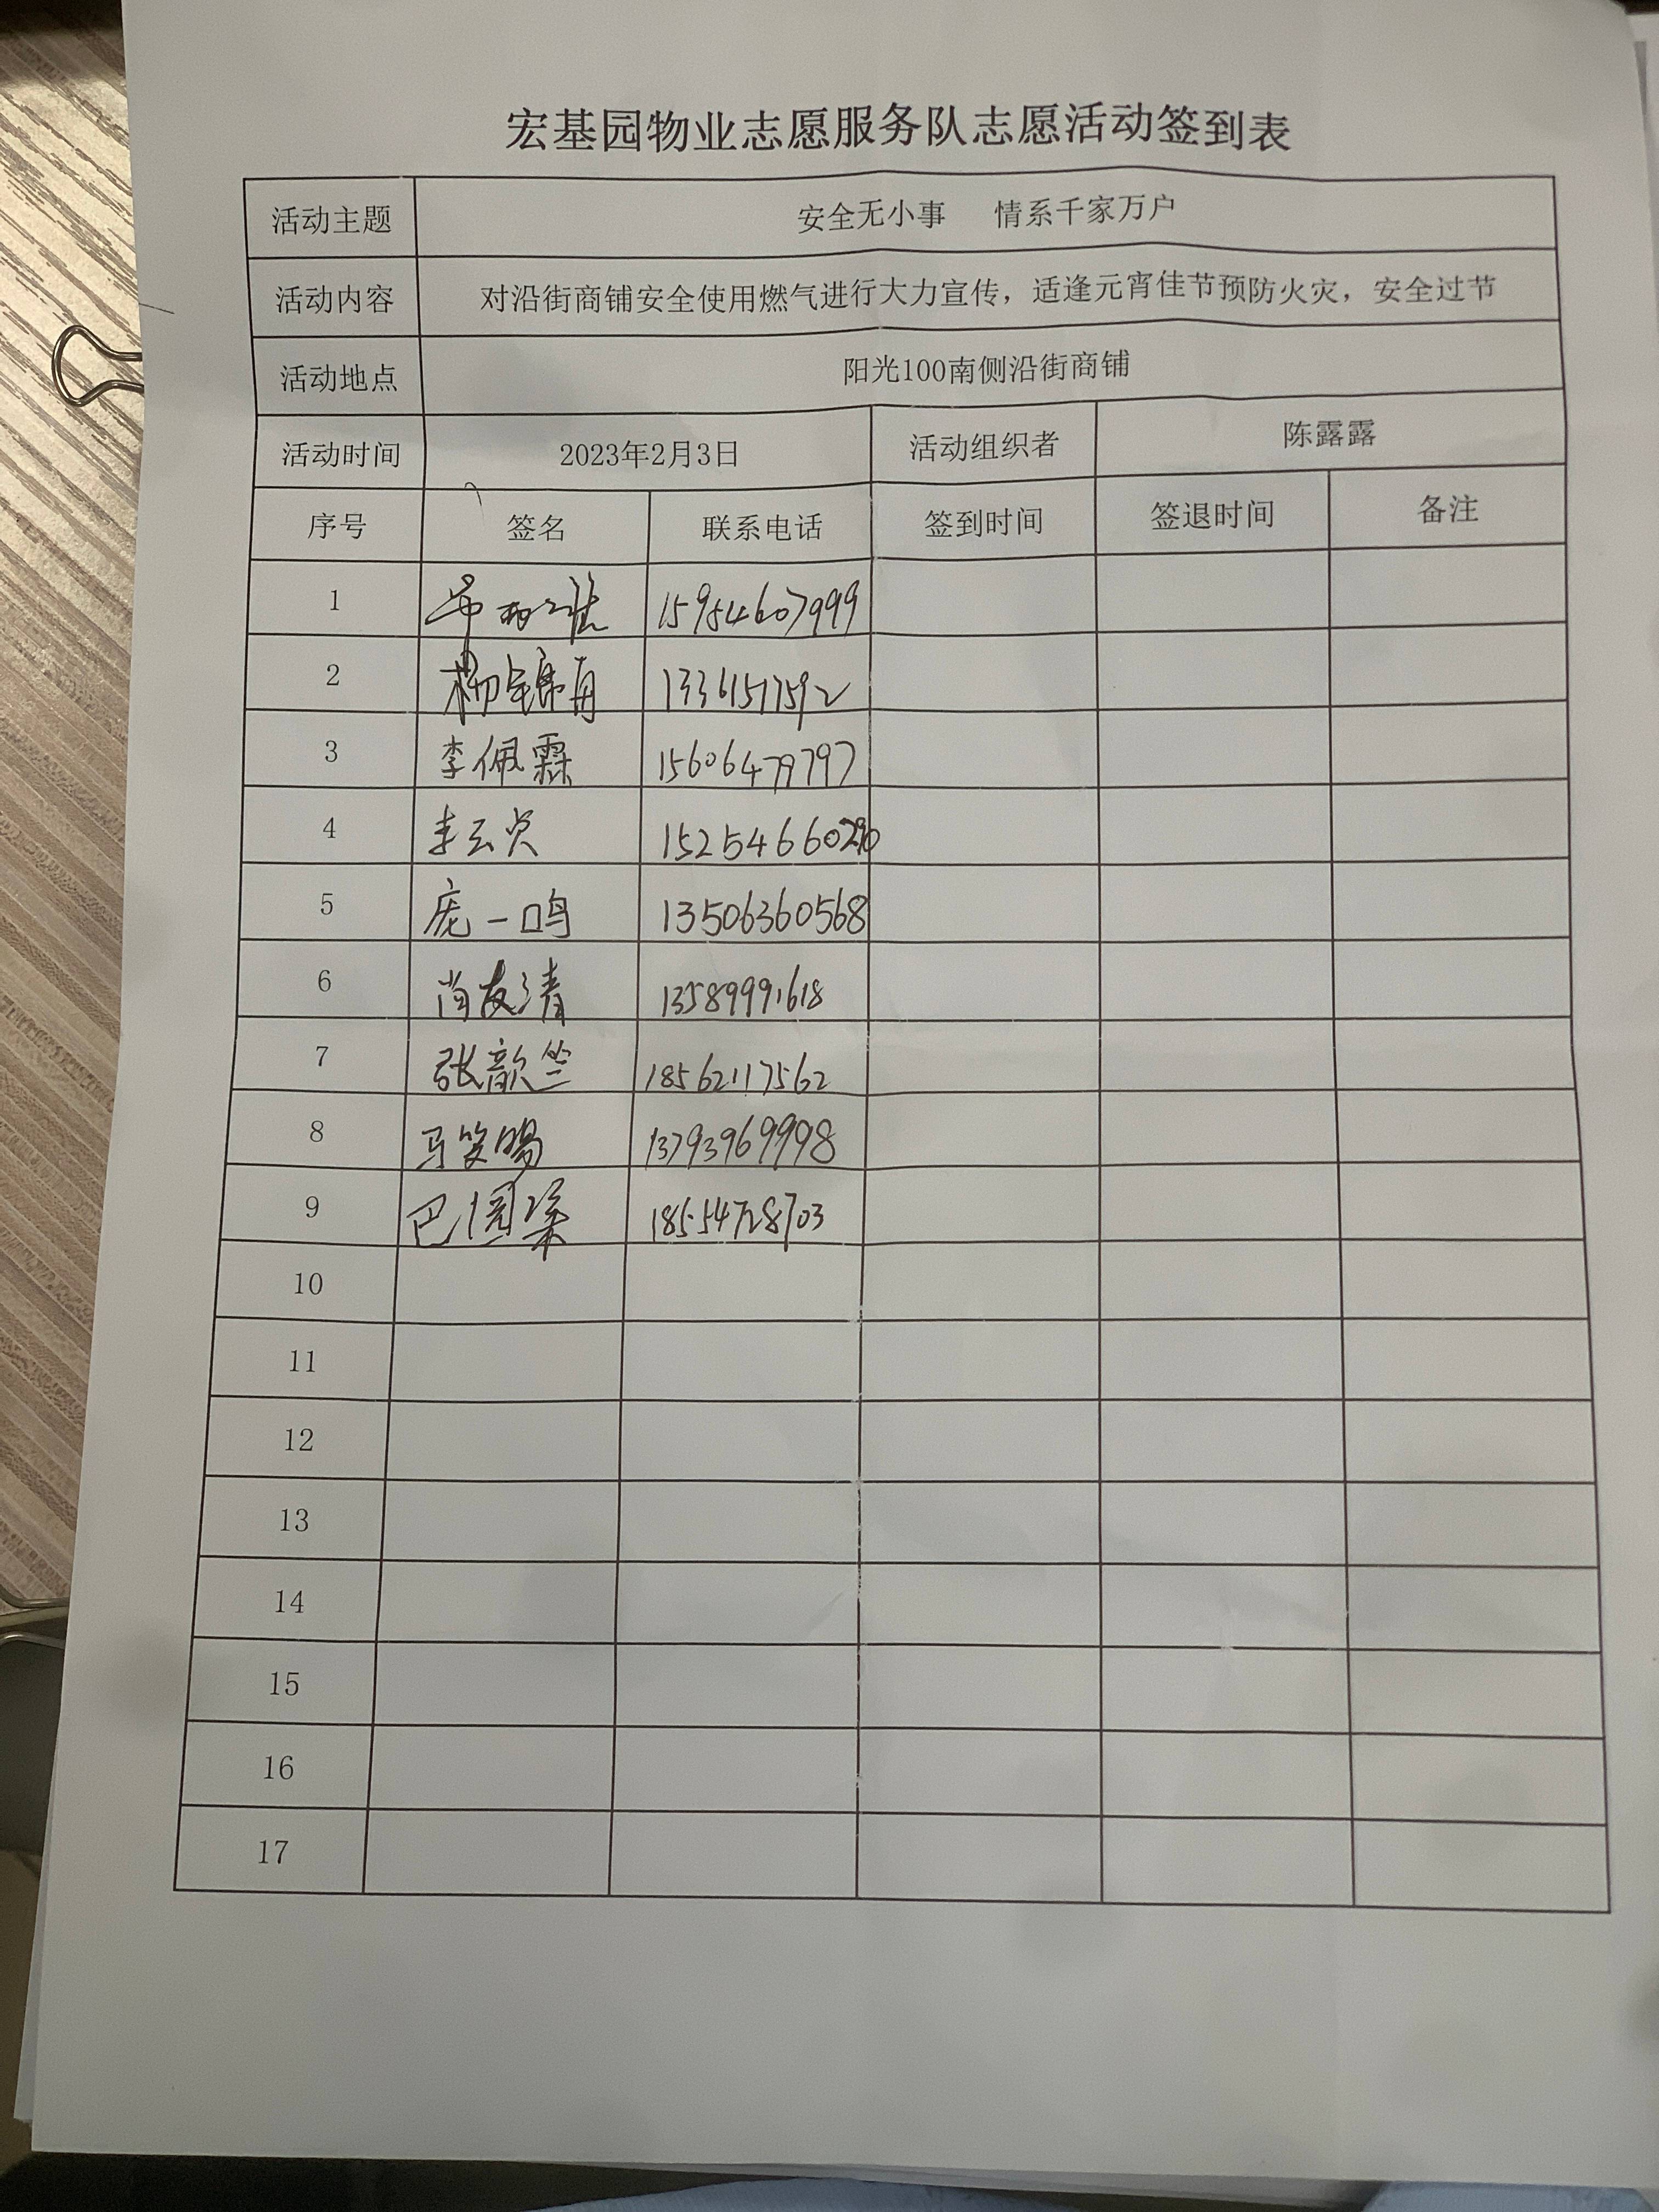 宏基园物业志愿服务队志愿活动签到表
活动主题 安全无小事 情系千家万户
活动内容 对沿街商铺安全使用燃气进行大力宣传，适逢元宵佳节预防火灾，安全过节
活动地点 阳光100南侧沿街商铺
活动时间 2023年2月3日 活动组织者 陈露露
序号 签名 联系电话 签到时间 签退时间 备注
1 15954607999
2 13361517592
3 李佩霖 15606479797
4 李云贞
5 庞一鸣 13506360568
6 尚友清 13589991618
7 张歆竺 18562117562
8 马笑晹 13793969998
9 18554728703
10
11
12
13
14
15
16
17